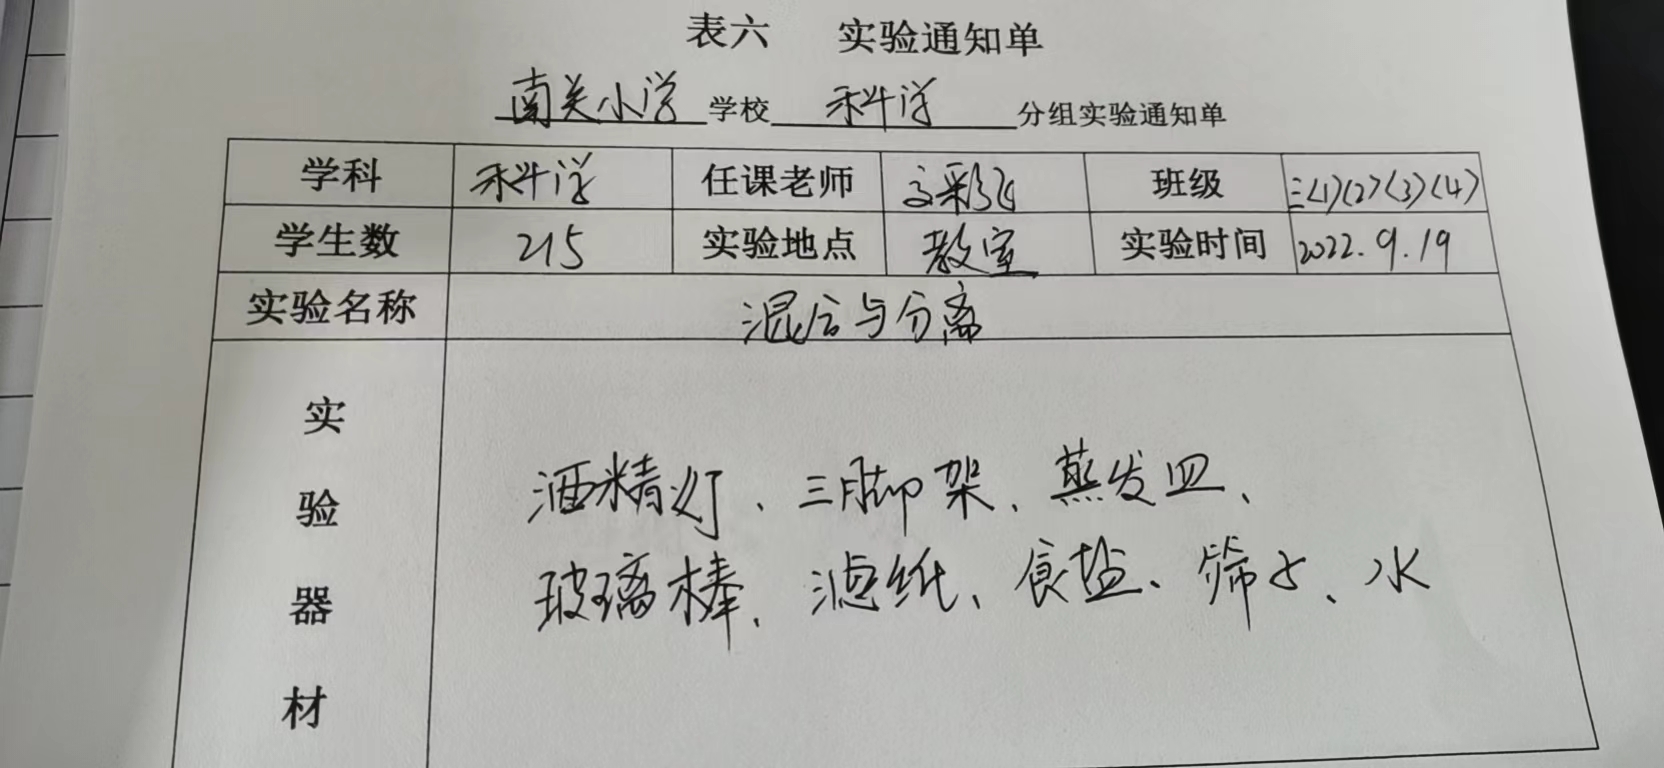 表六 实验通知单
南关小学 学校 科学 分组实验通知单
学科 科学 任课老师 文彩飞 班级 三(1)(2)(3)(4)
学生数 215 实验地点 教室 实验时间 2022.9.19
实验名称 混合与分离
实验器材
酒精灯、三脚架、蒸发皿、
玻璃棒、滤纸、食盐、筛子、水